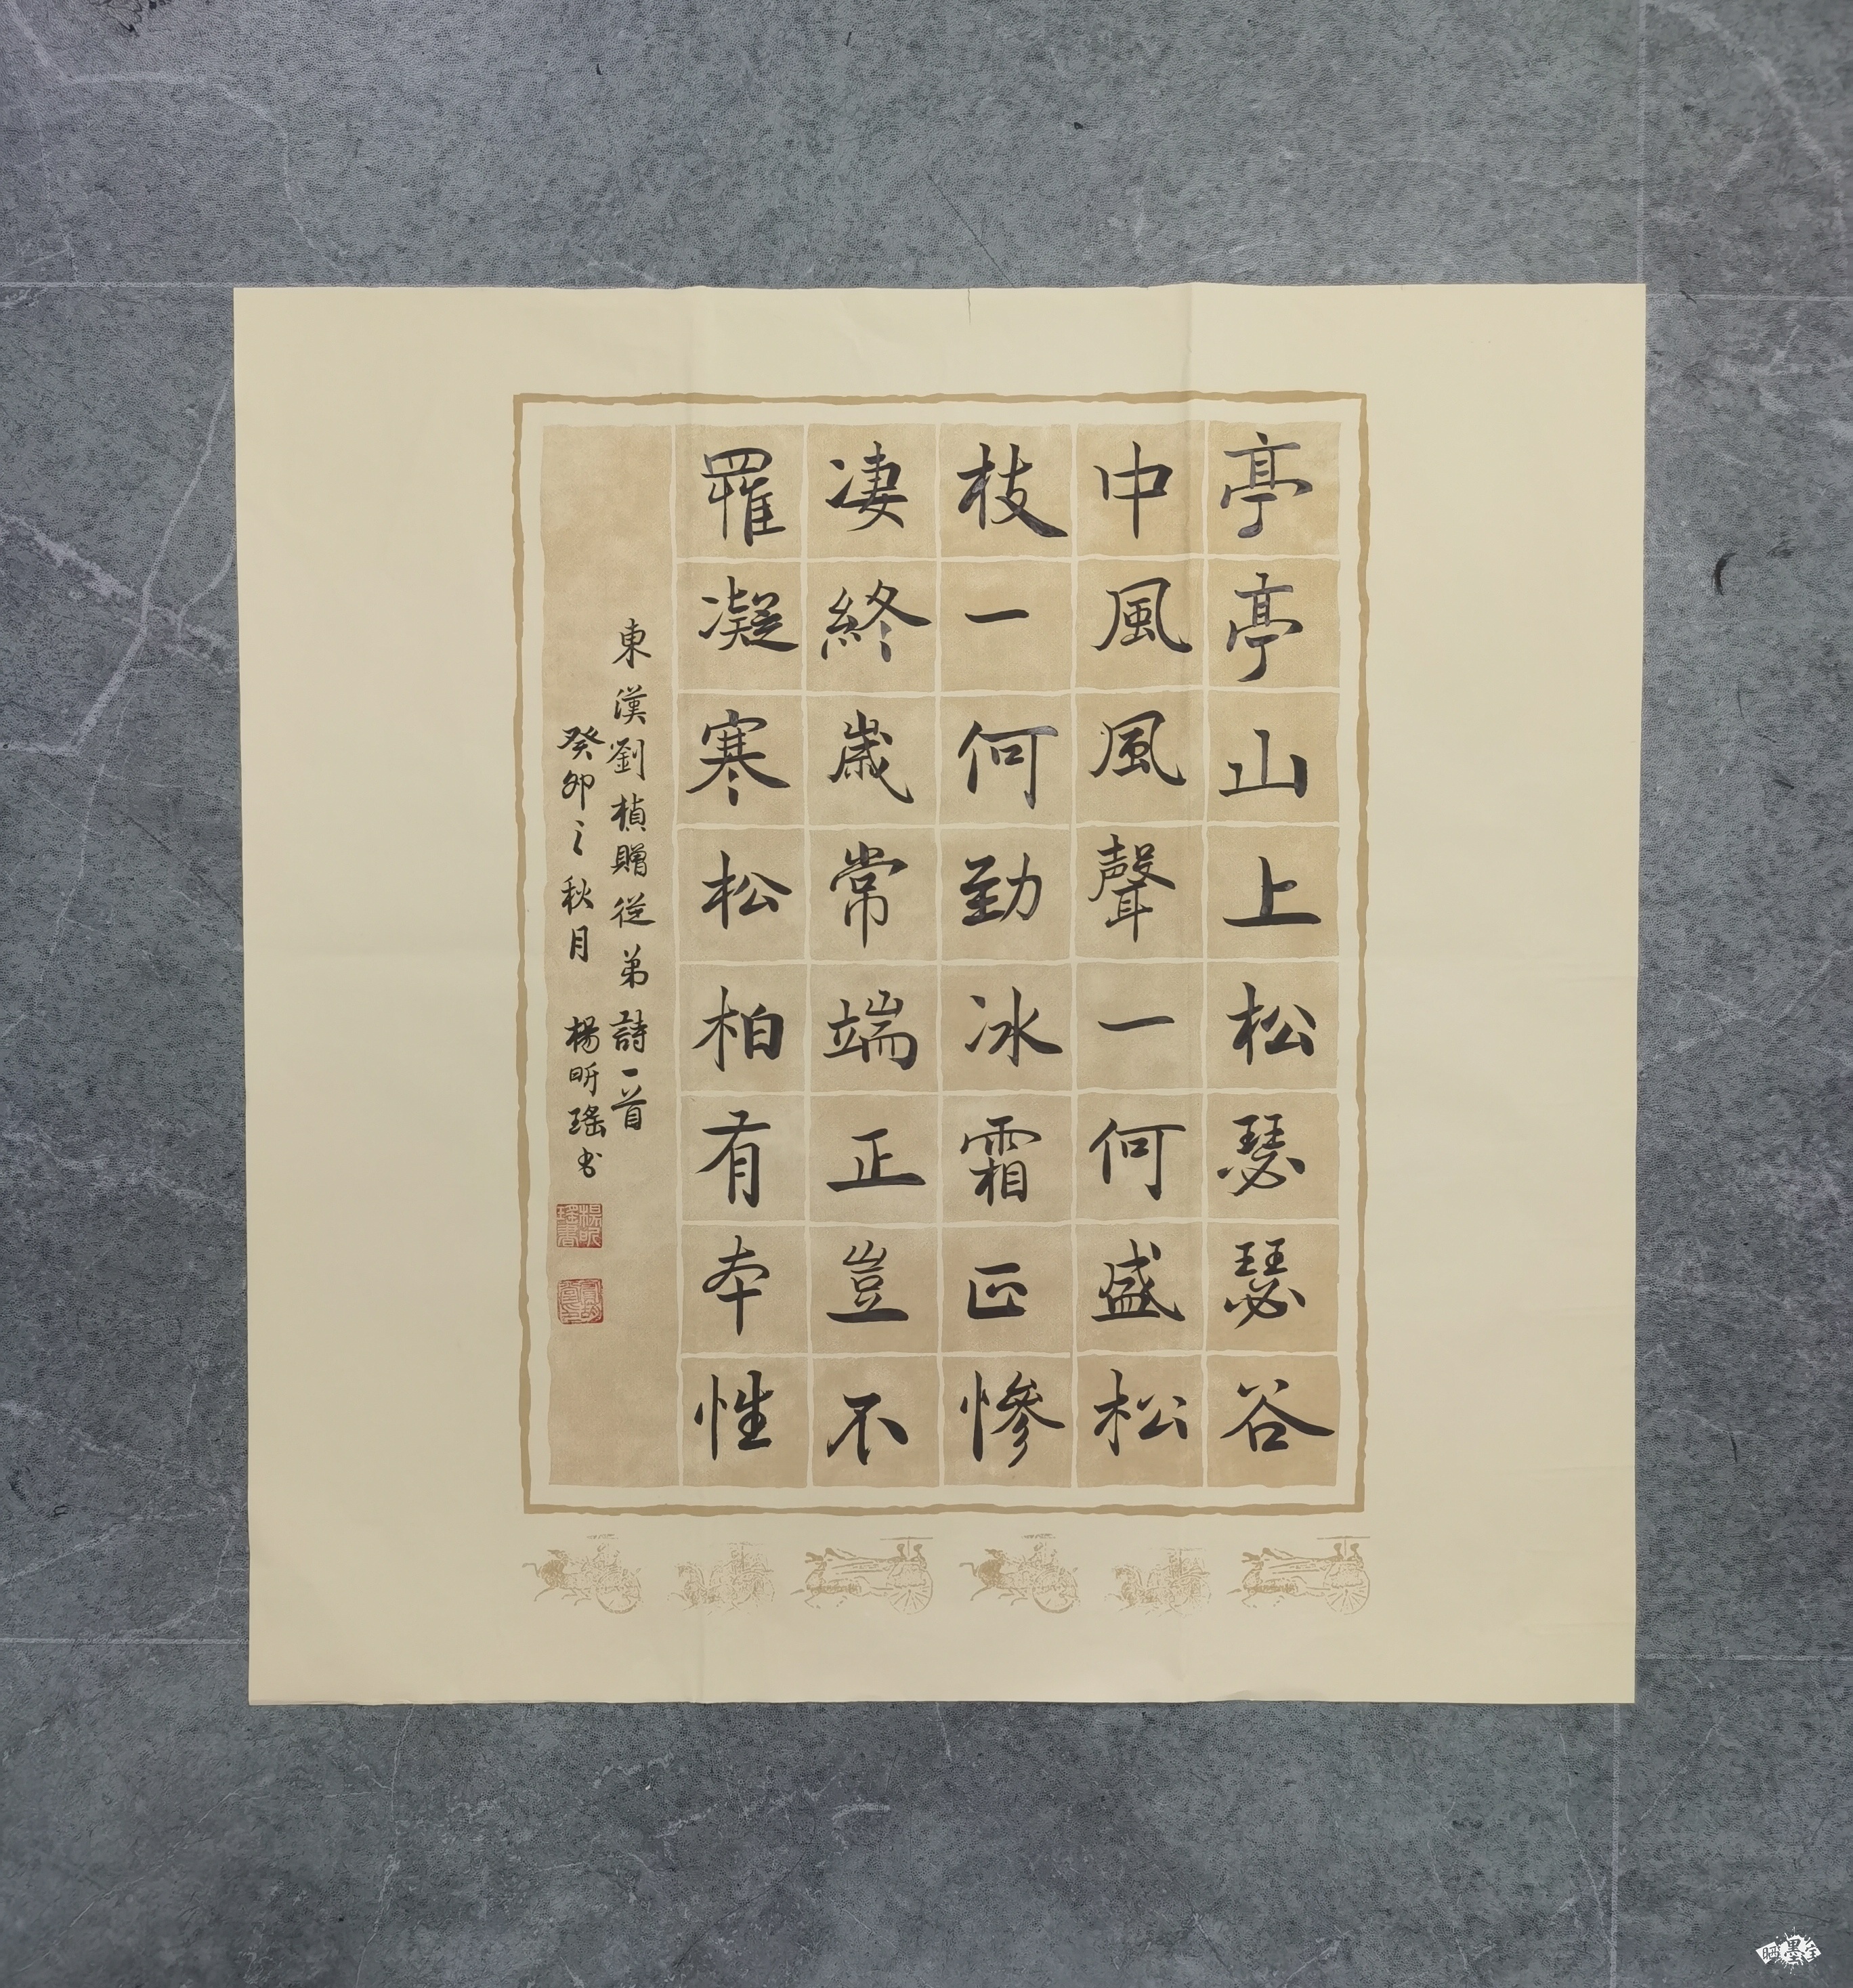 亭亭山上松瑟瑟谷
中風風聲一何盛松
枝一何勁冰霜正慘
凄終歲常端正豈不
罹凝寒松柏有本性
東漢劉楨贈從弟詩一首
癸卯之秋月 楊昕瑤书